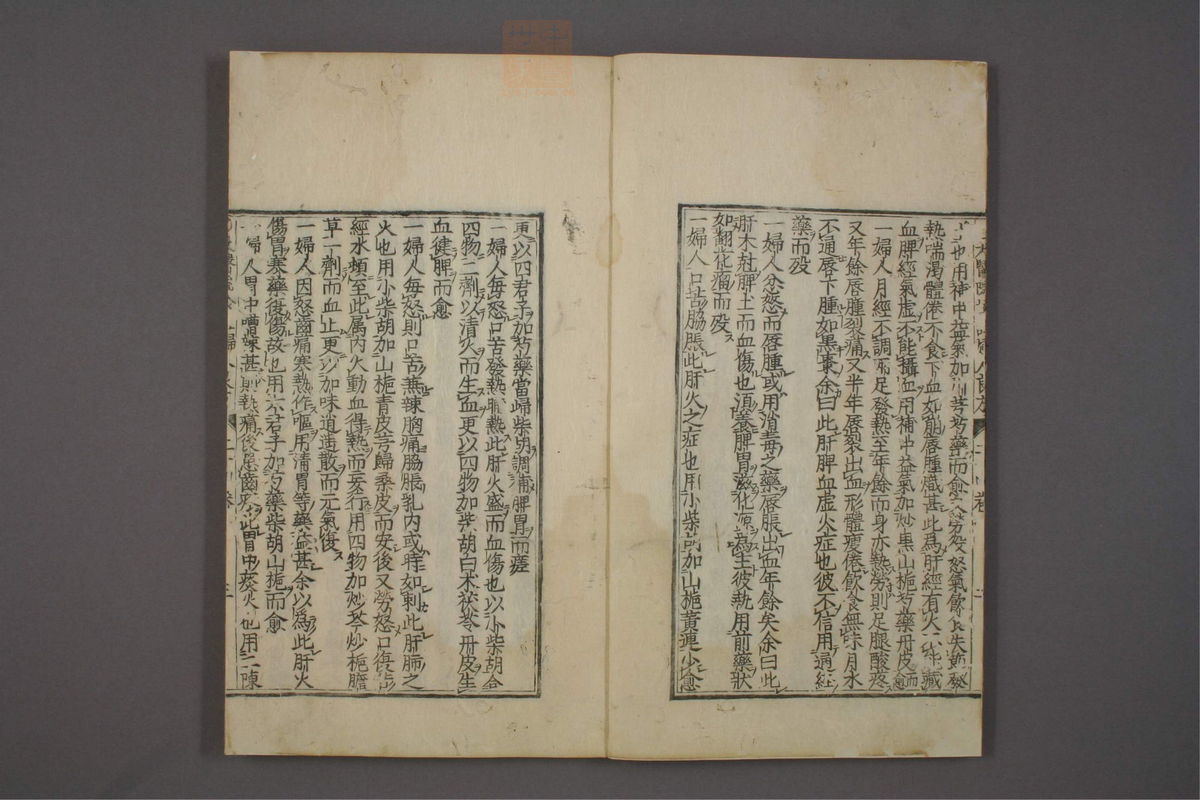 也用補中益氣加川芎芍藥而愈又勞役怒氣飲食失節發
熱喘渴體倦不食下血如崩唇腫熾甚此爲肝經有火不能藏
血脾經氣虛不能攝血用補中益氣加炒黑山梔芍藥丹皮而愈
一婦人月經不調兩足發熱至年餘而身亦熱勞則足腿酸疼
又年餘唇腫裂痛又半年唇裂出血形體瘦倦飲食無味月水
不通唇下腫如黑棗余曰此肝脾血虛火症也彼不信用通經
藥而殁
一婦人忿怒而唇腫或用消毒之藥唇脹出血年餘矣余曰此
肝木尅脾土而血傷也須養脾胃滋化源爲主彼執用前藥狀
如翻花瘤而殁
一婦人口苦脇脹此肝火之症也用小柴胡加山梔黃連少愈
更以四君子加芍藥當歸柴胡調補脾胃而瘥
一婦人每怒口苦發熱晡熱此肝火盛而血傷也以小柴胡合
四物二劑以清火而生血更以四物加柴胡白朮茯苓丹皮生
血健脾而愈
一婦人每怒則口苦兼辣胸痛脇脹乳內或時如刺此肝肺之
火也用小柴胡加山梔青皮芎歸桑皮而安後又勞怒口復
經水頓至此属肉火動血得熱而妄行用四物加炒芩炒梔膽
草一劑而血止更以加味逍遙散而元氣復
一婦人因怒齒痛寒熱作嘔用清胃等藥益甚余以爲此肝火
傷胃寒藥復傷故也用六君子加芍藥柴胡山梔而愈
一婦人胃中嘈辣甚則熱痛後患齒痛此胃中痰火也用二陳